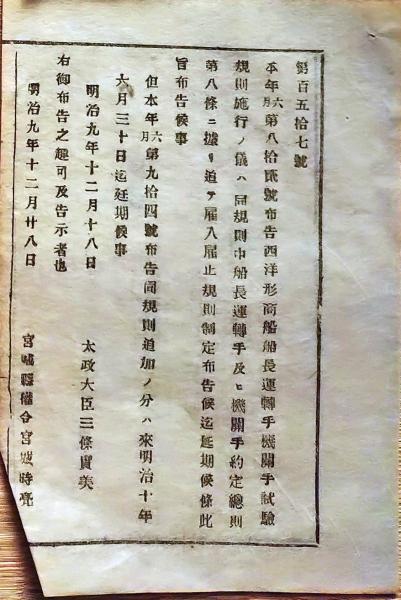 第百五拾七號
本年六月第八拾貳號布告西洋形商船船長運轉手機關手試驗
規則施行ノ儀ハ同規則中船長運轉手及ヒ機關手約定總則
第八條ニ據リ追テ雇入雇止規則制定布告候迄延期候條此
旨布告候事
但本年六月第九拾四號布告同規則追加ノ分ハ來明治十年
六月三十日迄延期候事
明治九年十二月十八日
太政大臣三條實美
右御布告之趣可及告示者也
明治九年十二月廿八日
宮城縣權令宮城時亮